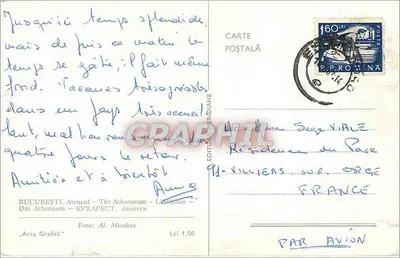 Jusqu'ici temps splendide
mais depuis ce matin le
temps se gâte, il fait même
froid. Vacances très agréables
dans un pays très accueil
lant, malheureusement dans
quatre jours le retour.
Amitiés et à bientôt
BUCUREŞTI. Ateneul — The Athenaeum — L'Athénée —
Das Athenäum — БУХАРЕСТ. Атенеул
Foto: Al. Mendrea
„Arta Grafică” Lei 1,50
CARTE
POŞTALĂ
1,60 LEI
R.P. ROMINA
Mr Mme Serge VIALE
Résidence du Parc
91-VILLIERS. SUR. ORGE
FRANCE
PAR AVION
CRAPHTIL